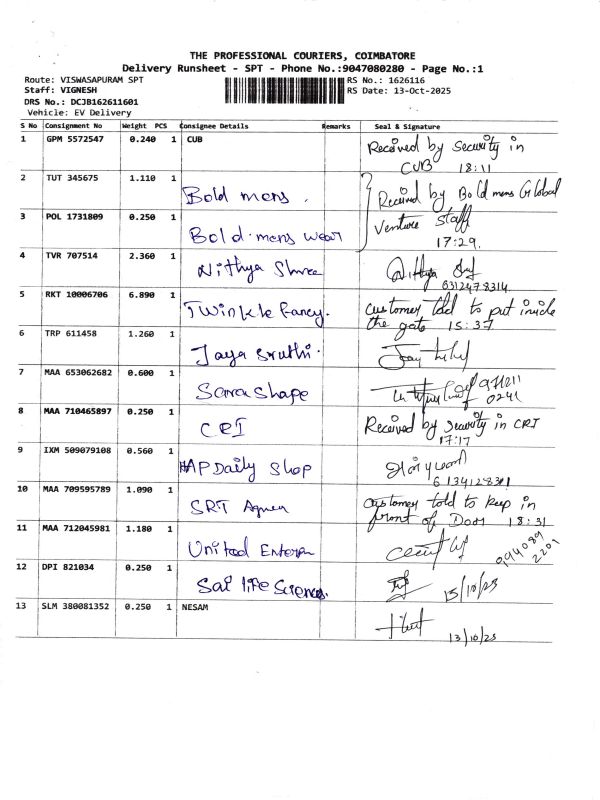 THE PROFESSIONAL COURIERS, COIMBATORE
Delivery Runsheet - SPT - Phone No.:9047080280 - Page No.:1
Route: VISWASAPURAM SPT
RS No.: 1626116
Staff: VIGNESH
RS Date: 13-Oct-2025
DRS No.: DCJB162611601
Vehicle: EV Delivery
S No Consignment No Weight PCS Consignee Details Remarks Seal & Signature
1 GPM 5572547 0.240 1 CUB Received by Security in
CUB 18:11
2 TUT 345675 1.110 1 Bold mens. Received by Bold mens Global
3 POL 1731809 0.250 1 Bold mens wear Venture Staff
17:29.
4 TVR 707514 2.360 1 Nithya Shree Nithya
6312478314
5 RKT 10006706 6.890 1 Twinkle fancy. Customer told to put inside
the gate 15:37
6 TRP 611458 1.260 1 Jaya Sruthi.
7 MAA 653062682 0.600 1 Sara Shape
0241
8 MAA 710465897 0.250 1 CRI Received by Security in CRI
17:17
9 IXM 509079108 0.560 1 HAP Daily Shop
10 MAA 709595789 1.090 1 SRT Customer told to keep in
front of Door 18:31
11 MAA 712045981 1.180 1 United
12 DPI 821034 0.250 1 Sai life Sciences. 13/10/25
13 SLM 380081352 0.250 1 NESAM
13/10/25